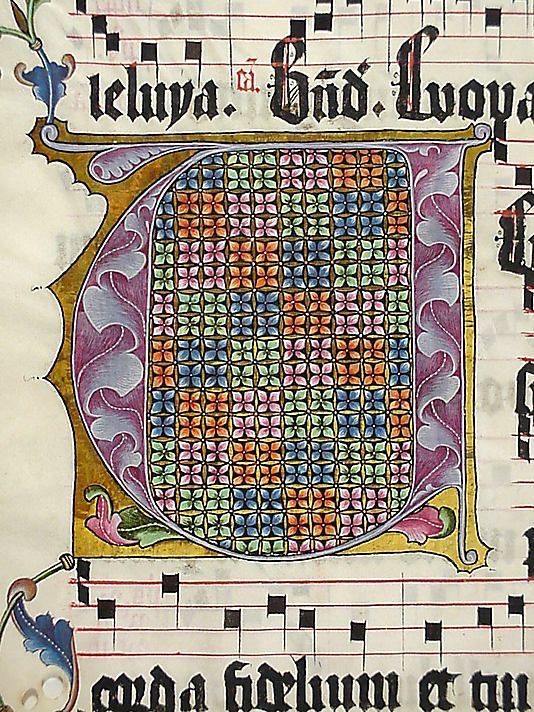 leluya. cā. Bn̄d̄. Euoua
corda fidelium et tui